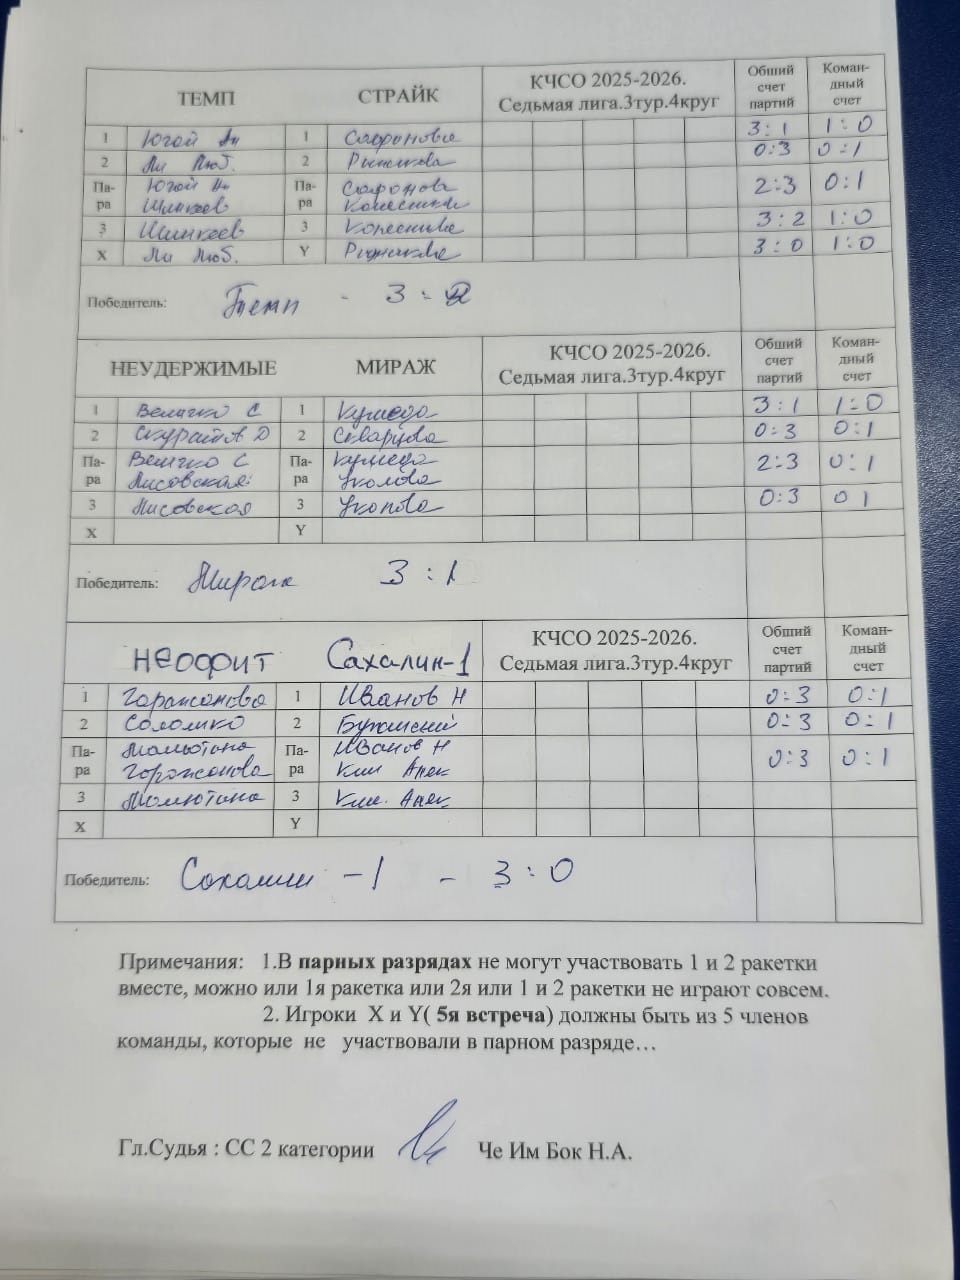 ТЕМП СТРАЙК КЧСО 2025-2026. Седьмая лига.3тур.4круг Общий счет партий Коман-дный счет
1 Югай Ан 1 Сафронова 3:1 1:0
2 Ли Люб. 2 Рыжикова 0:3 0:1
Па-ра Югай Ан Па-ра Сафронова 2:3 0:1
Шинкеев Колесник
3 Шинкеев 3 3:2 1:0
X Ли Люб. Y Рыжикова 3:0 1:0
Победитель: Темп - 3:2
НЕУДЕРЖИМЫЕ МИРАЖ КЧСО 2025-2026. Седьмая лига.3тур.4круг Общий счет партий Коман-дный счет
1 Величко С 1 Кумеда 3:1 1:0
2 Скуратов Д 2 Скварцова 0:3 0:1
Па-ра Величко С Па-ра Кумеда 2:3 0:1
Лисовская Уколова
3 Лисовская 3 Уколова 0:3 0 1
X Y
Победитель: Мираж 3:1
НЕОФИТ Сахалин-1 КЧСО 2025-2026. Седьмая лига.3тур.4круг Общий счет партий Коман-дный счет
1 Горожанова 1 Иванов Н 0:3 0:1
2 Соломко 2 0:3 0:1
Па-ра Малютина Па-ра Иванов Н 0:3 0:1
Горожанова Ким Алек
3 Малютина 3 Ким. Алек
X Y
Победитель: Сахалин -1 - 3:0
Примечания: 1.В парных разрядах не могут участвовать 1 и 2 ракетки
вместе, можно или 1я ракетка или 2я или 1 и 2 ракетки не играют совсем.
2. Игроки X и Y( 5я встреча) должны быть из 5 членов
команды, которые не участвовали в парном разряде…
Гл.Судья : СС 2 категории Че Им Бок Н.А.